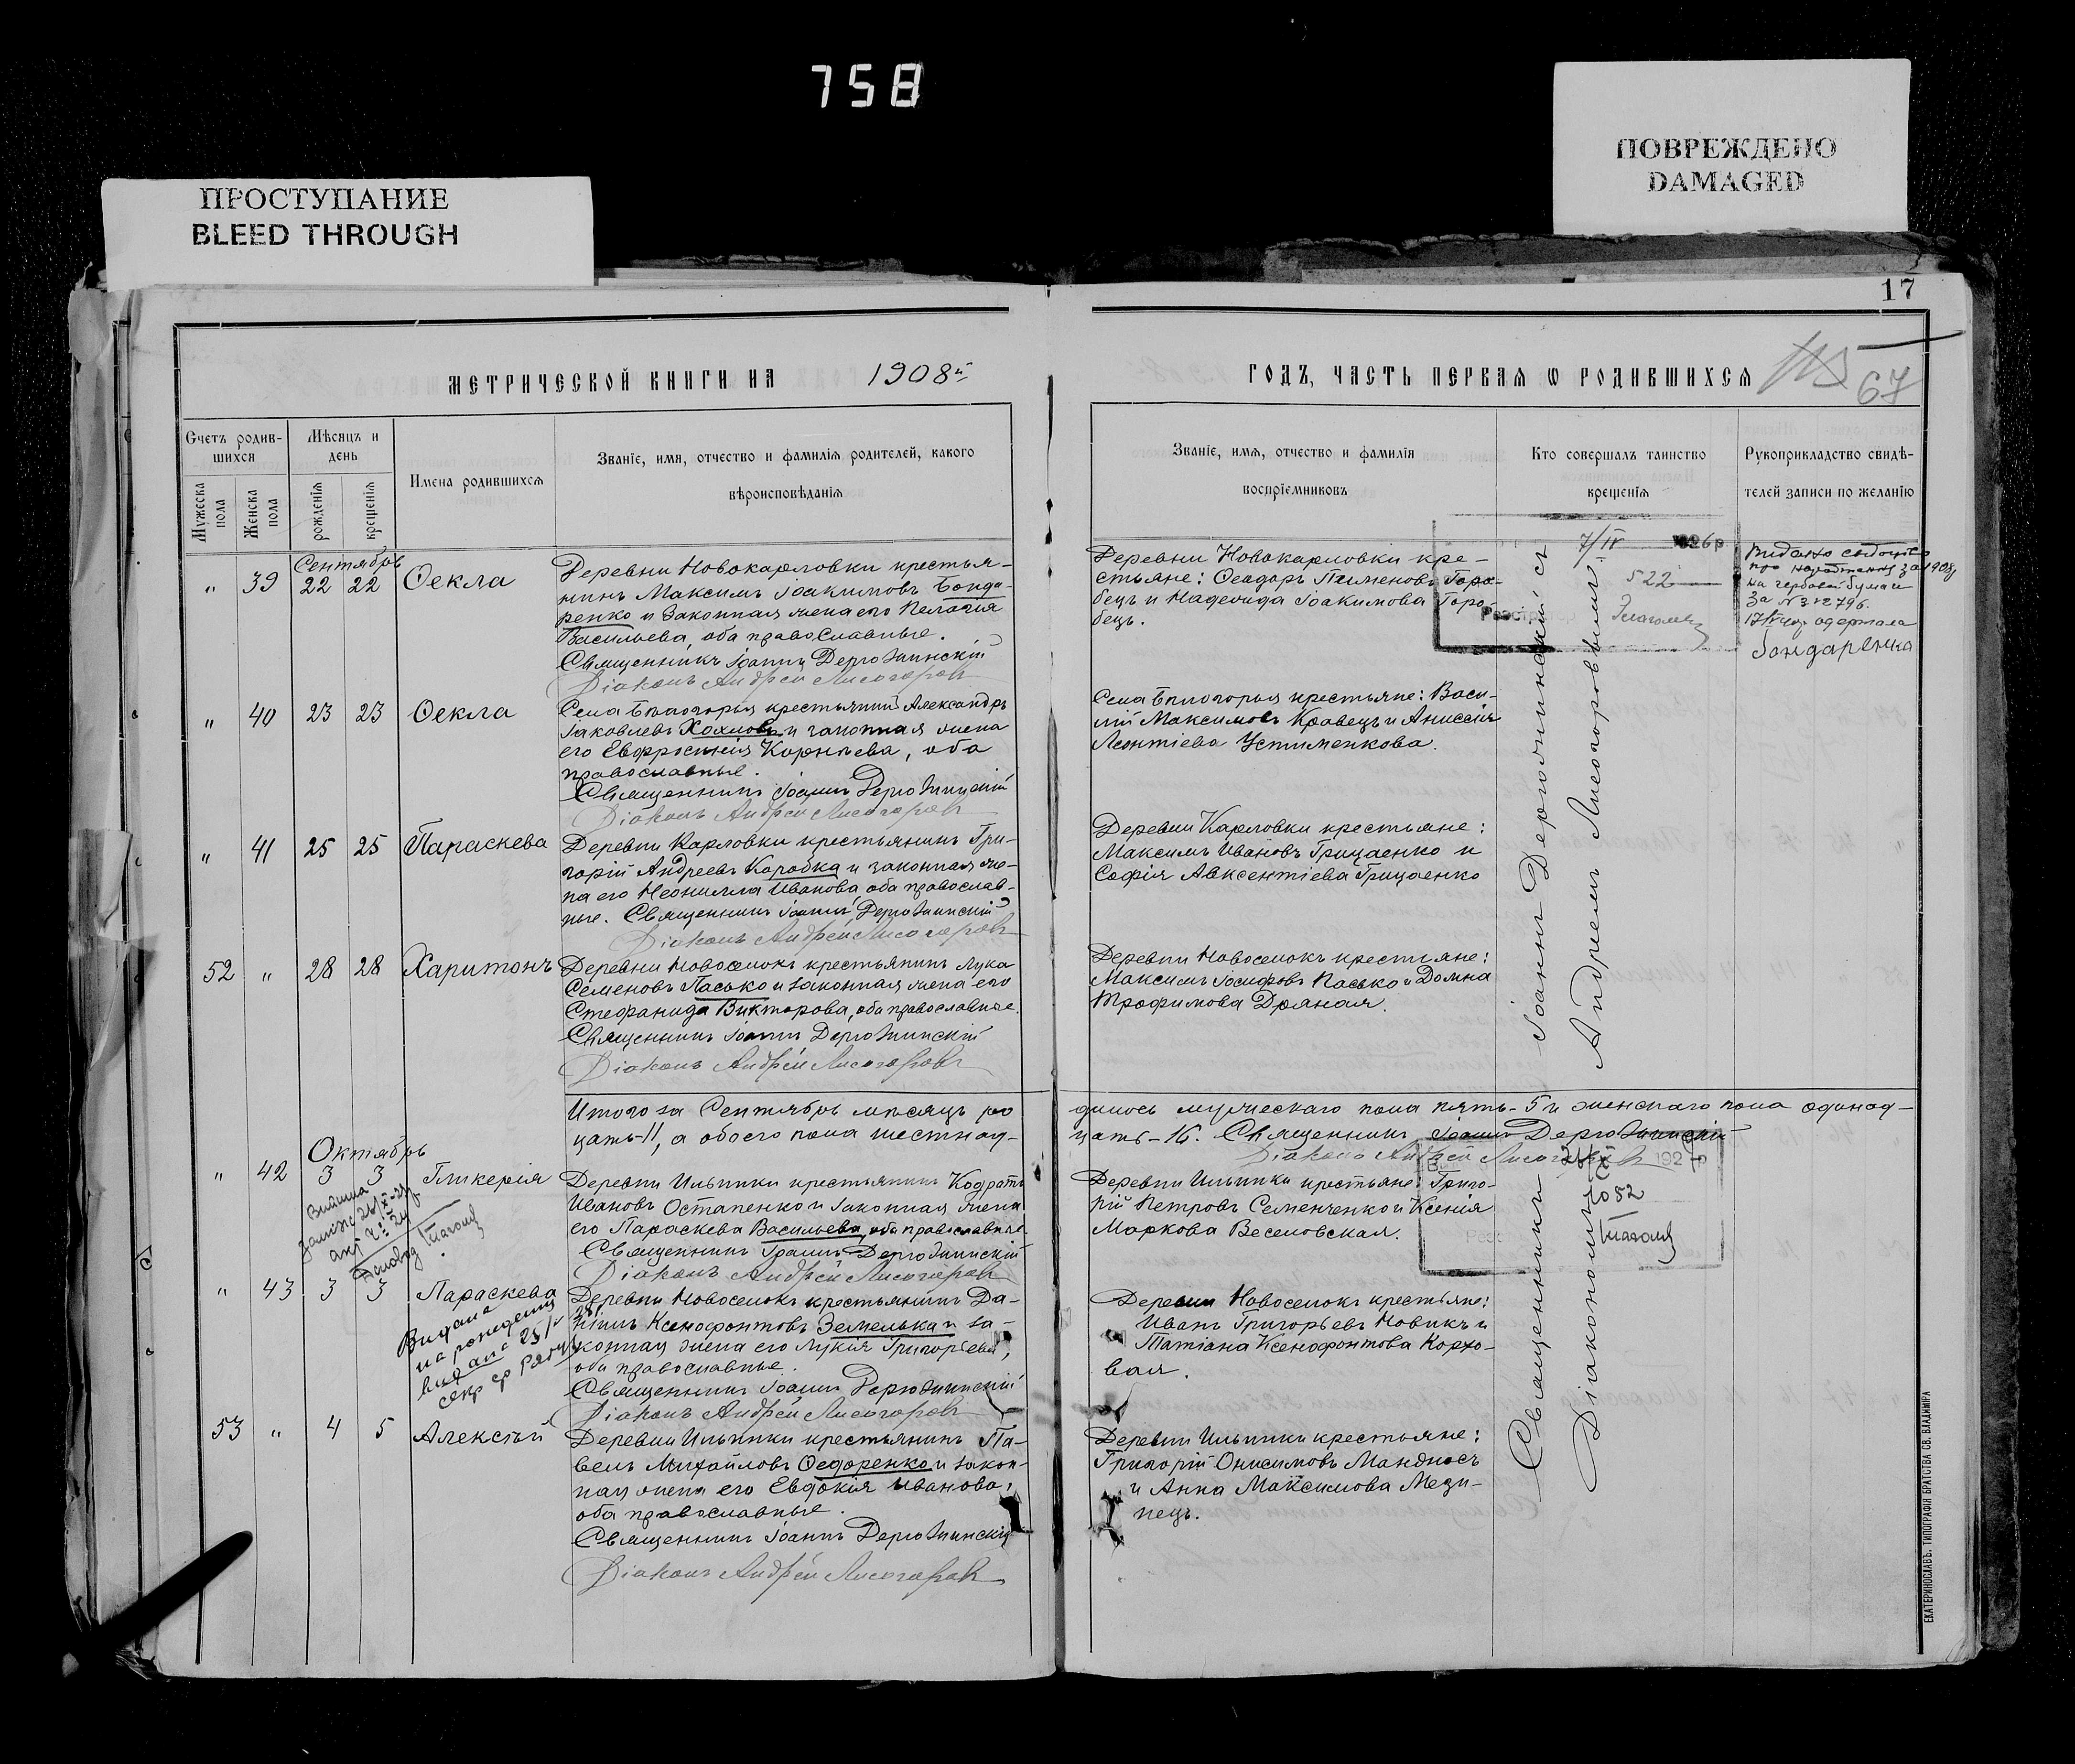 758
ПОВРЕЖДЕНО
DAMAGED
ПРОСТУПАНИЕ
BLEED THROUGH
17
67
МЕТРИЧЕСКОЙ КНИГИ НА 1908й
ГОДЪ, ЧАСТЬ ПЕРВАЯ Ѡ РОДИВШИХСЯ
Счетъ родив-
шихся
Мужеска
пола
Женска
пола
Мѣсяцъ и
день
рожденія
крещенія
Имена родившихся
Званіе, имя, отчество и фамилія родителей, какого
вѣроисповѣданія
Званіе, имя, отчество и фамилія
воспріемниковъ
Кто совершалъ таинство
крещенія
Рукоприкладство свидѣ-
телей записи по желанію
Сентябрь
" 39 22 22 Ѳекла
Деревни Новокарловки крестья-
нинъ Максимъ Іоакимовъ Бонда-
ренко и законная жена его Пелагія
Васильева, оба православные.
Священникъ Іоаннъ Держинскій
Діаконъ Андрей Лисогоровъ
Деревни Новокарловки кре-
стьяне: Ѳеодоръ Пименовъ Горо-
бецъ и Надежда Іоакимова Горо-
бецъ.
7/IV 1926р
522
Реєстр
на гербовой бумаги
за № 2796.
одержала
Бондаренко
" 40 23 23 Ѳекла
Села Бѣлогорья крестьянинъ Александръ
Іаковлевъ Хохловъ и законная жена
его Евфросинія Корнѣева, оба
православные.
Священникъ Іоаннъ Держинскій
Діаконъ Андрей Лисогоровъ
Села Бѣлогорья крестьяне: Васи-
лій Максимовъ Кравецъ и Анисія
Леонтіева Устименкова.
" 41 25 25 Параскева
Деревни Карловки крестьянинъ Гри-
горій Андреевъ Коробка и законная же-
на его Неонилла Иванова, оба православ-
ные. Священникъ Іоаннъ Держинскій
Діаконъ Андрей Лисогоровъ
Деревни Карловки крестьяне:
Максимъ Ивановъ Грицаенко и
Софія Авксентіева Грицаенко
52 " 28 28 Харитонъ
Деревни Новоселокъ крестьянинъ Лука
Семеновъ Пасько и законная жена его
Стефанида Викторова, оба православные.
Священникъ Іоаннъ Держинскій
Діаконъ Андрей Лисогоровъ
Деревни Новоселокъ крестьяне:
Максимъ Іосифовъ Пасько и Домна
Трофимова Дряная.
Итого за Сентябрь мѣсяцъ ро
дилось мужескаго пола пять - 5 и женскаго пола одинад-
цать-11, а обоего пола шестнад-
цать - 16. Священникъ Іоаннъ Держинскій
Діаконъ Андрей Лисогоровъ
Октябрь
" 42 3 3 Гликерія
Деревни Ильинки крестьянинъ Кодратъ
Ивановъ Остапенко и законная жена
его Параскева Васильева, оба православные.
Священникъ Іоаннъ Держинскій
Діаконъ Андрей Лисогоровъ
Деревни Ильинки крестьяне: Григо-
рій Петровъ Семенченко и Ксенія
Маркова Веселовская.
192
" 43 3 3 Параскева
Видана
на рожденіе
видана 25/
секр
Деревни Новоселокъ крестьянинъ Да-
ніилъ Ксенофонтовъ Земелька и за-
конная жена его Лукія Григорьева,
оба православные.
Священникъ Іоаннъ Держинскій
Діаконъ Андрей Лисогоровъ
Деревни Новоселокъ крестьяне:
Иванъ Григорьевъ Новикъ и
Татіана Ксенофонтова Корхо-
вая.
53 " 4 5 Алексѣй
Деревни Ильинки крестьянинъ Па-
велъ Михайловъ Ѳедоренко и закон-
ная жена его Евдокія Иванова,
оба православные.
Священникъ Іоаннъ Держинскій
Діаконъ Андрей Лисогоровъ
Деревни Ильинки крестьяне:
Григорій Онисимовъ Манднось
и Анна Максимова Мези-
нецъ.
Священникъ Іоаннъ Держинскій съ
Діакономъ Андреемъ Лисогоровымъ.
ЕКАТЕРИНОСЛАВЪ. ТИПОГРАФІЯ БРАТСТВА СВ. ВЛАДИМІРА